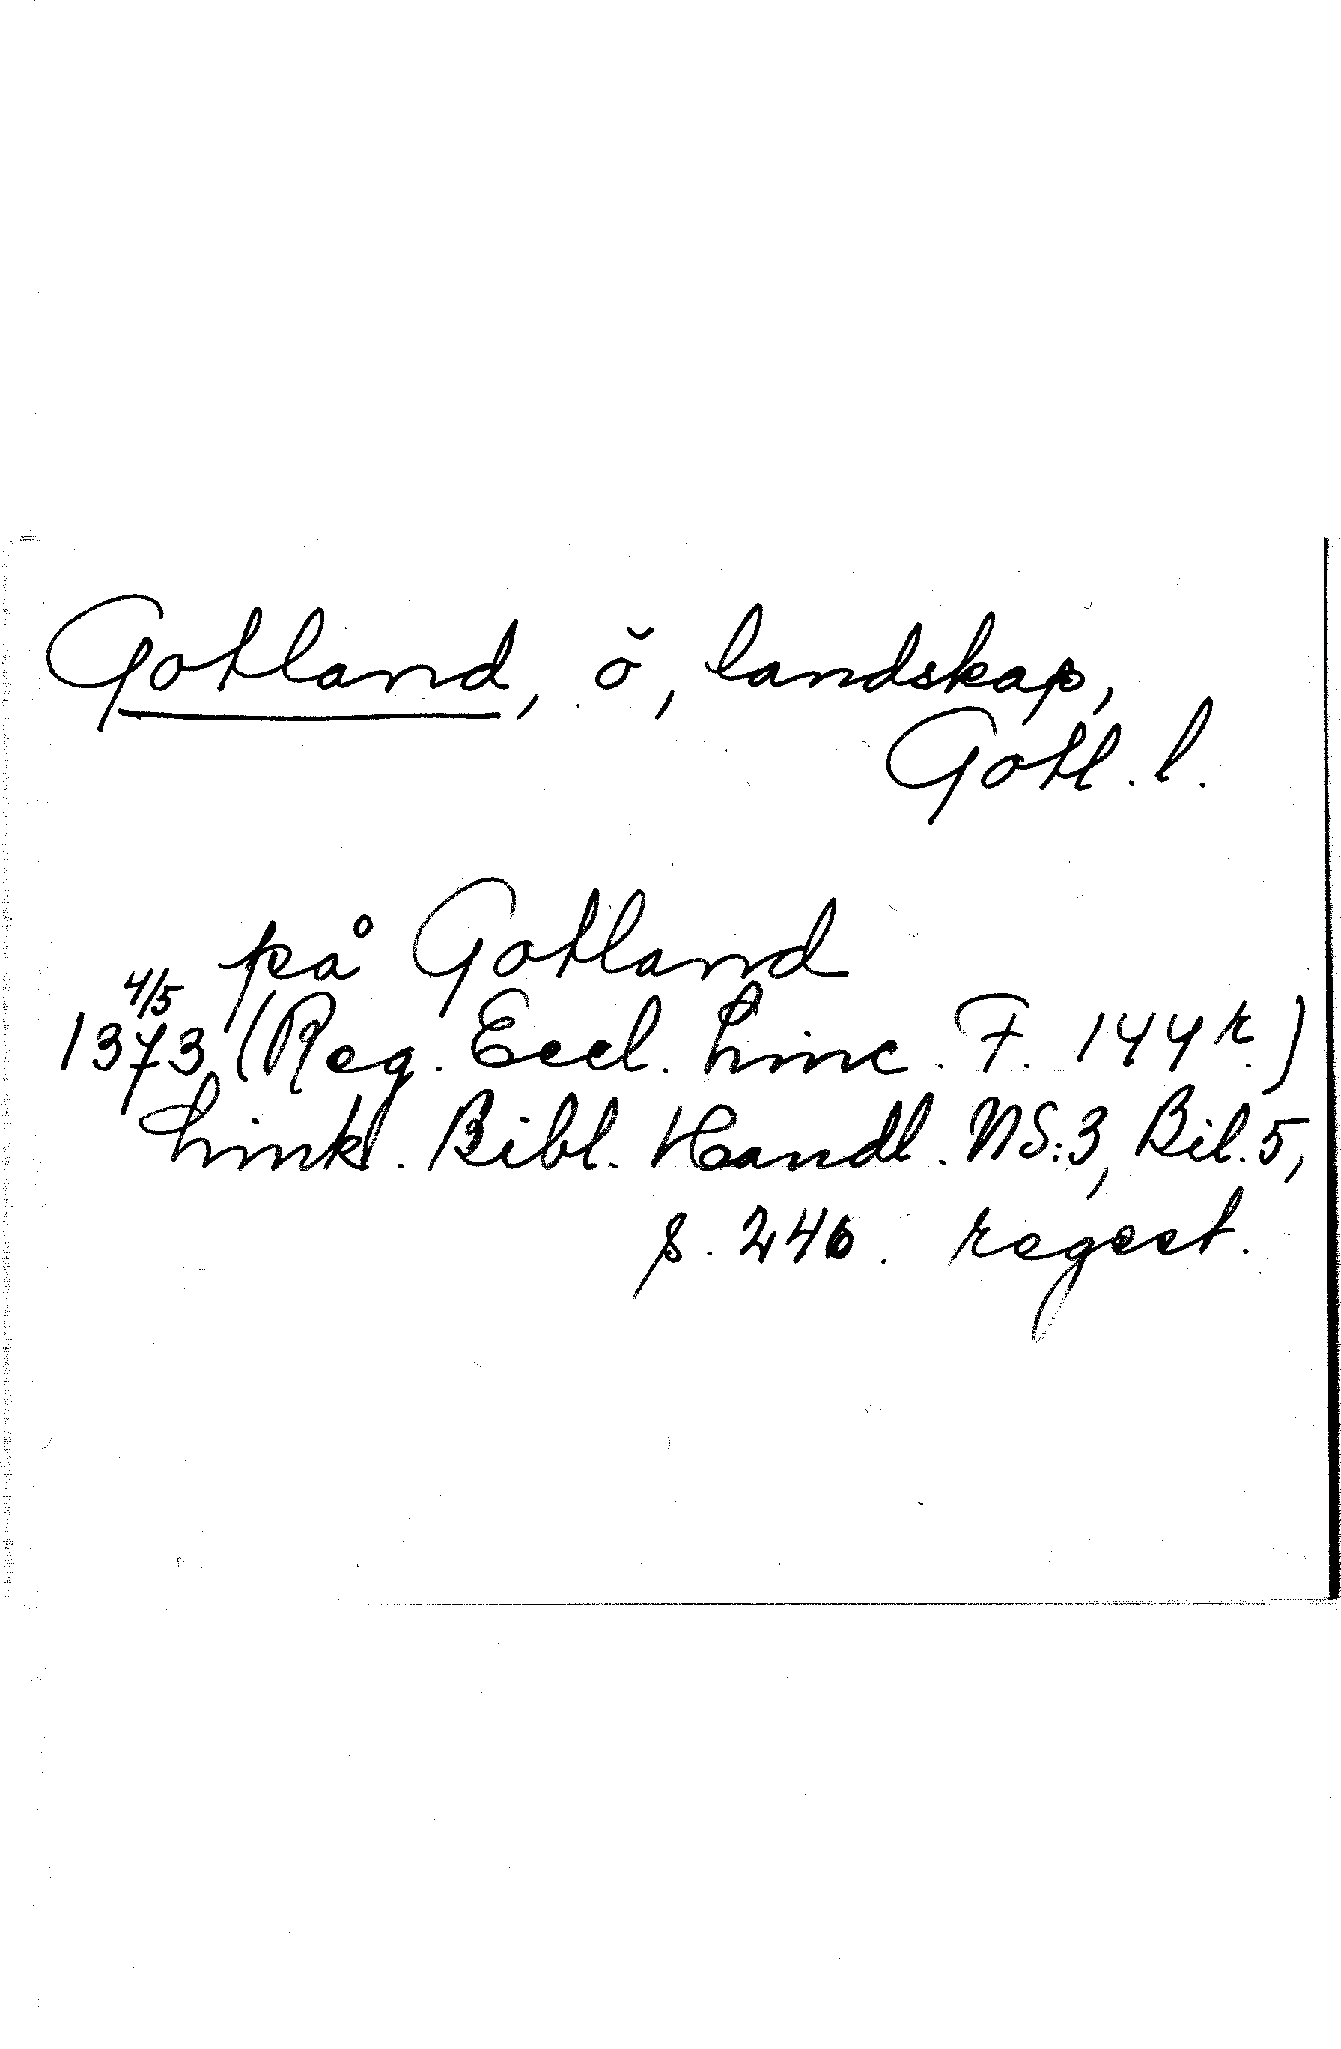 Gotland, ö, landskap,
Gotl. l.
på Gotland
4/5
1373 (Reg. Eccl. Linc. F. 144 r.)
Link. Bibl. Handl. NS:3, Bil. 5,
s. 246. regest.